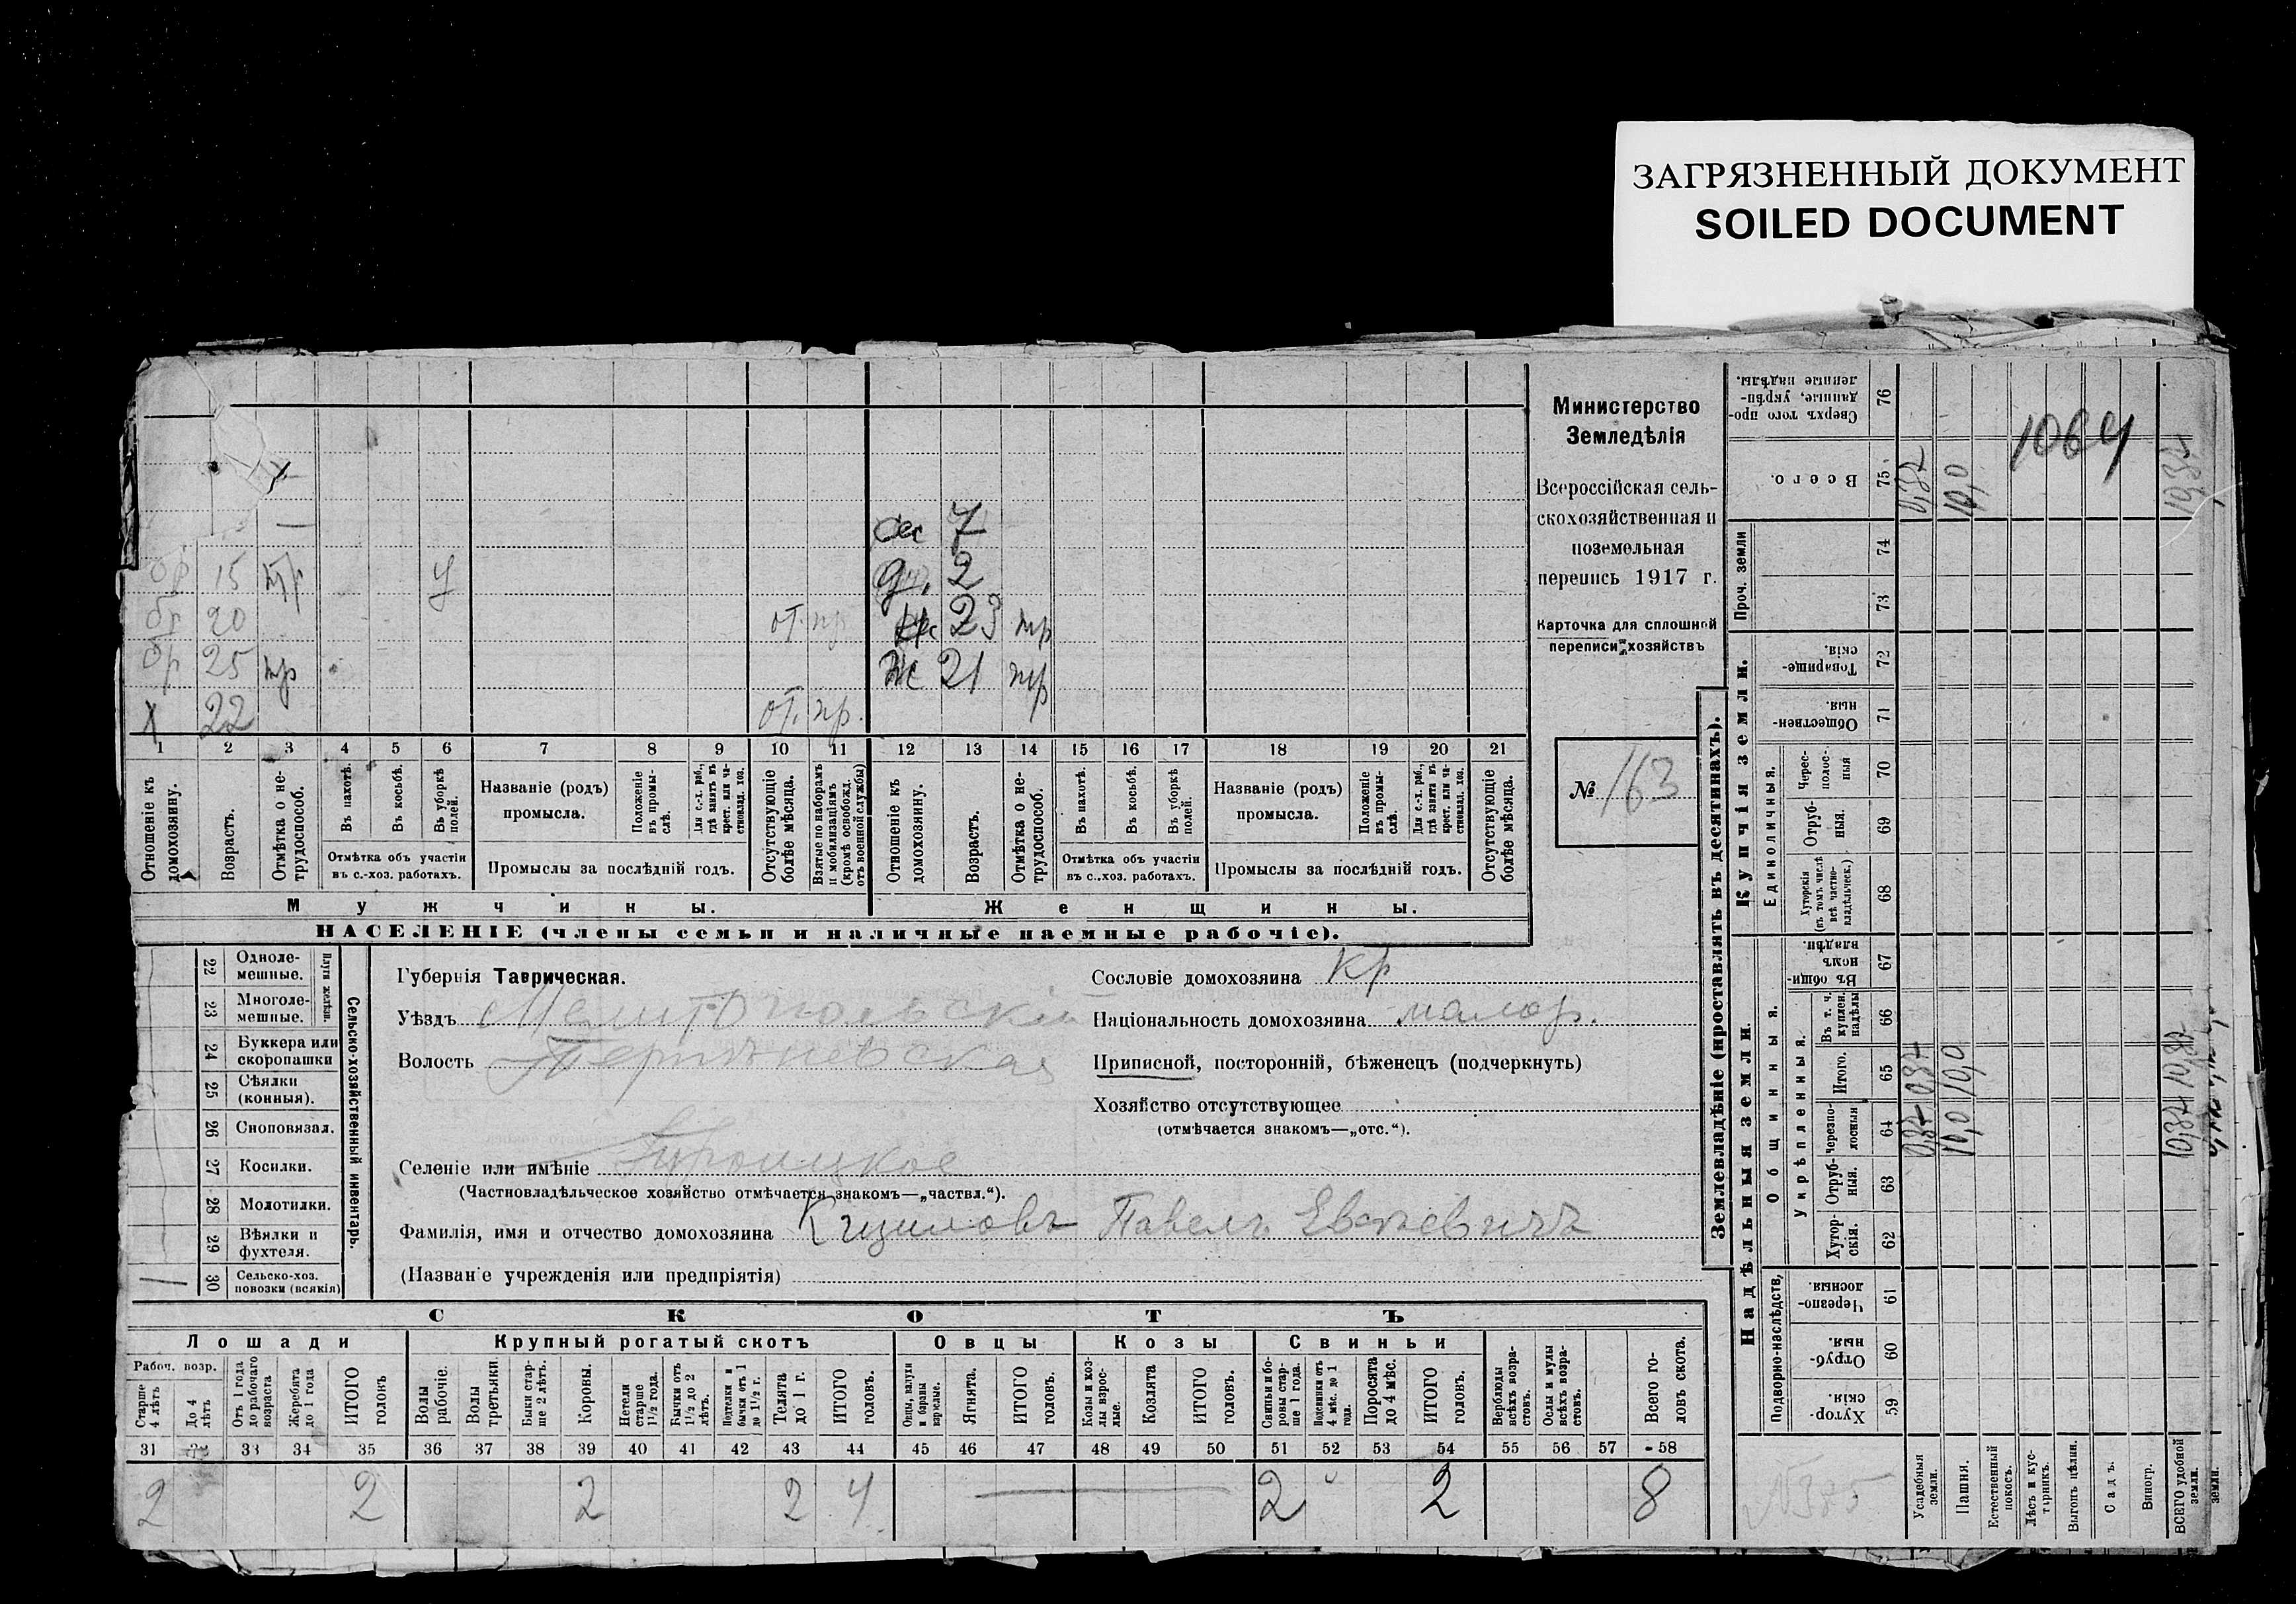 ЗАГРЯЗНЕННЫЙ ДОКУМЕНТ
SOILED DOCUMENT
Министерство
Земледѣлія
Всероссійская сель-
скохозяйственная и
поземельная
перепись 1917 г.
Карточка для сплошной
переписи хозяйствъ
№ 163
7
15 нр у
д. 2
бр 20 от. нр 23 нр
бр 25 нр ж 21 нр
х 22 от. нр.
1 2 3 4 5 6 7 8 9 10 11 12 13 14 15 16 17 18 19 20 21
Отношеніе къ домохозяину.
Возрастъ.
Отмѣтка о не-трудоспособ.
Въ пахотѣ.
Въ косьбѣ.
Въ уборкѣ полей.
Отмѣтка объ участіи
въ с.-хоз. работахъ.
Названіе (родъ)
промысла.
Положеніе въ промы-слѣ.
Для с.-х. раб., гдѣ занятъ въ крест. или ча-стновлад. хоз.
Промыслы за послѣдній годъ.
Отсутствующіе болѣе мѣсяца.
Взятые по наборамъ и мобилизаціямъ (кромѣ освобожд. отъ военной службы)
Отношеніе къ домохозяину.
Возрастъ.
Отмѣтка о не-трудоспособ.
Въ пахотѣ.
Въ косьбѣ.
Въ уборкѣ полей.
Отмѣтка объ участіи
въ с.-хоз. работахъ.
Названіе (родъ)
промысла.
Положеніе въ промы-слѣ.
Для с.-х. раб., гдѣ занята въ крест. или ча-стновлад. хоз.
Промыслы за послѣдній годъ.
Отсутствующіе болѣе мѣсяца.
Мужчины. Женщины.
НАСЕЛЕНІЕ (члены семьи и наличные наемные рабочіе).
22 Одноле-мешные.
23 Многоле-мешные.
Плуги желѣзн.
24 Буккера или скоропашки
25 Сѣялки (конныя).
26 Сноповязал.
27 Косилки.
28 Молотилки.
29 Вѣялки и фухтеля.
30 Сельско-хоз. повозки (всякія)
Сельско-хозяйственный инвентарь.
Губернія Таврическая.
Уѣздъ Мелитопольскій
Волость
Селеніе или имѣніе Троицкое
(Частновладѣльческое хозяйство отмѣчается знакомъ—„частвл.“).
Фамилія, имя и отчество домохозяина Павелъ
(Названіе учрежденія или предпріятія)
Сословіе домохозяина кр
Національность домохозяина малор.
Приписной, посторонній, бѣженецъ (подчеркнуть)
Хозяйство отсутствующее
(отмѣчается знакомъ—„отс.“).
СКОТЪ
Лошади Крупный рогатый скотъ Овцы Козы Свиньи
Рабоч. возр.
Старше 4 лѣтъ
До 4 лѣтъ
Отъ 1 года до рабочаго возраста
Жеребята до 1 года
ИТОГО головъ
Волы рабочіе.
Волы третьяки.
Быки стар-ше 2 лѣтъ.
Коровы.
Нетели старше 1½ года.
Бычки отъ 1½ до 2 лѣтъ.
Подтелки и бычки отъ 1 до 1½ г.
Телята до 1 г.
ИТОГО головъ.
Овцы, валухи и бараны взрослые.
Ягнята.
ИТОГО головъ.
Козы и коз-лы взрос-лые.
Козлята
ИТОГО головъ.
Свиньи и бо-ровы стар-ше 1 года.
Подсвинки отъ 4 мѣс. до 1 года.
Поросята до 4 мѣс.
ИТОГО головъ.
Верблюды всѣхъ возра-стовъ.
Ослы и мулы всѣхъ возра-стовъ.
Всего го-ловъ скота.
31 32 33 34 35 36 37 38 39 40 41 42 43 44 45 46 47 48 49 50 51 52 53 54 55 56 57 58
2 2 2 2 4 2 2 8
Землевладѣніе (проставлять въ десятинахъ).
Надѣльныя земли. Купчія земли. Проч. земли
Подворно-наслѣдств.
Общинныя.
Укрѣпленныя.
Единоличныя.
59 Хутор-скія.
60 Отруб-ныя.
61 Черезпо-лосныя
62 Хутор-скія.
63 Отруб-ныя.
64 Черезпо-лосныя
65 Итого.
66 Въ т. ч. куплен. надѣлы
67 Въ общин-номъ владѣн.
68 Хуторскія (въ томъ числѣ всѣ частно-владѣльческ.)
69 Отруб-ныя.
70 Черес-полос-ныя
71 Обществен-ныя.
72 Товарище-скія.
73
74
75 Всего.
76 Сверхъ того про-данные, укрѣп-ленные надѣлы.
Усадебныя земли. 0,87 0,87 0,87
Пашня. 10,0 10,0 10,0
Естественный покосъ.
Лѣсъ и кус-тарникъ.
Выгонъ цѣлин.
Садъ.
Виногр.
ВСЕГО удобной земли. 10,87 10,87 10,87
земли.
1064
№385